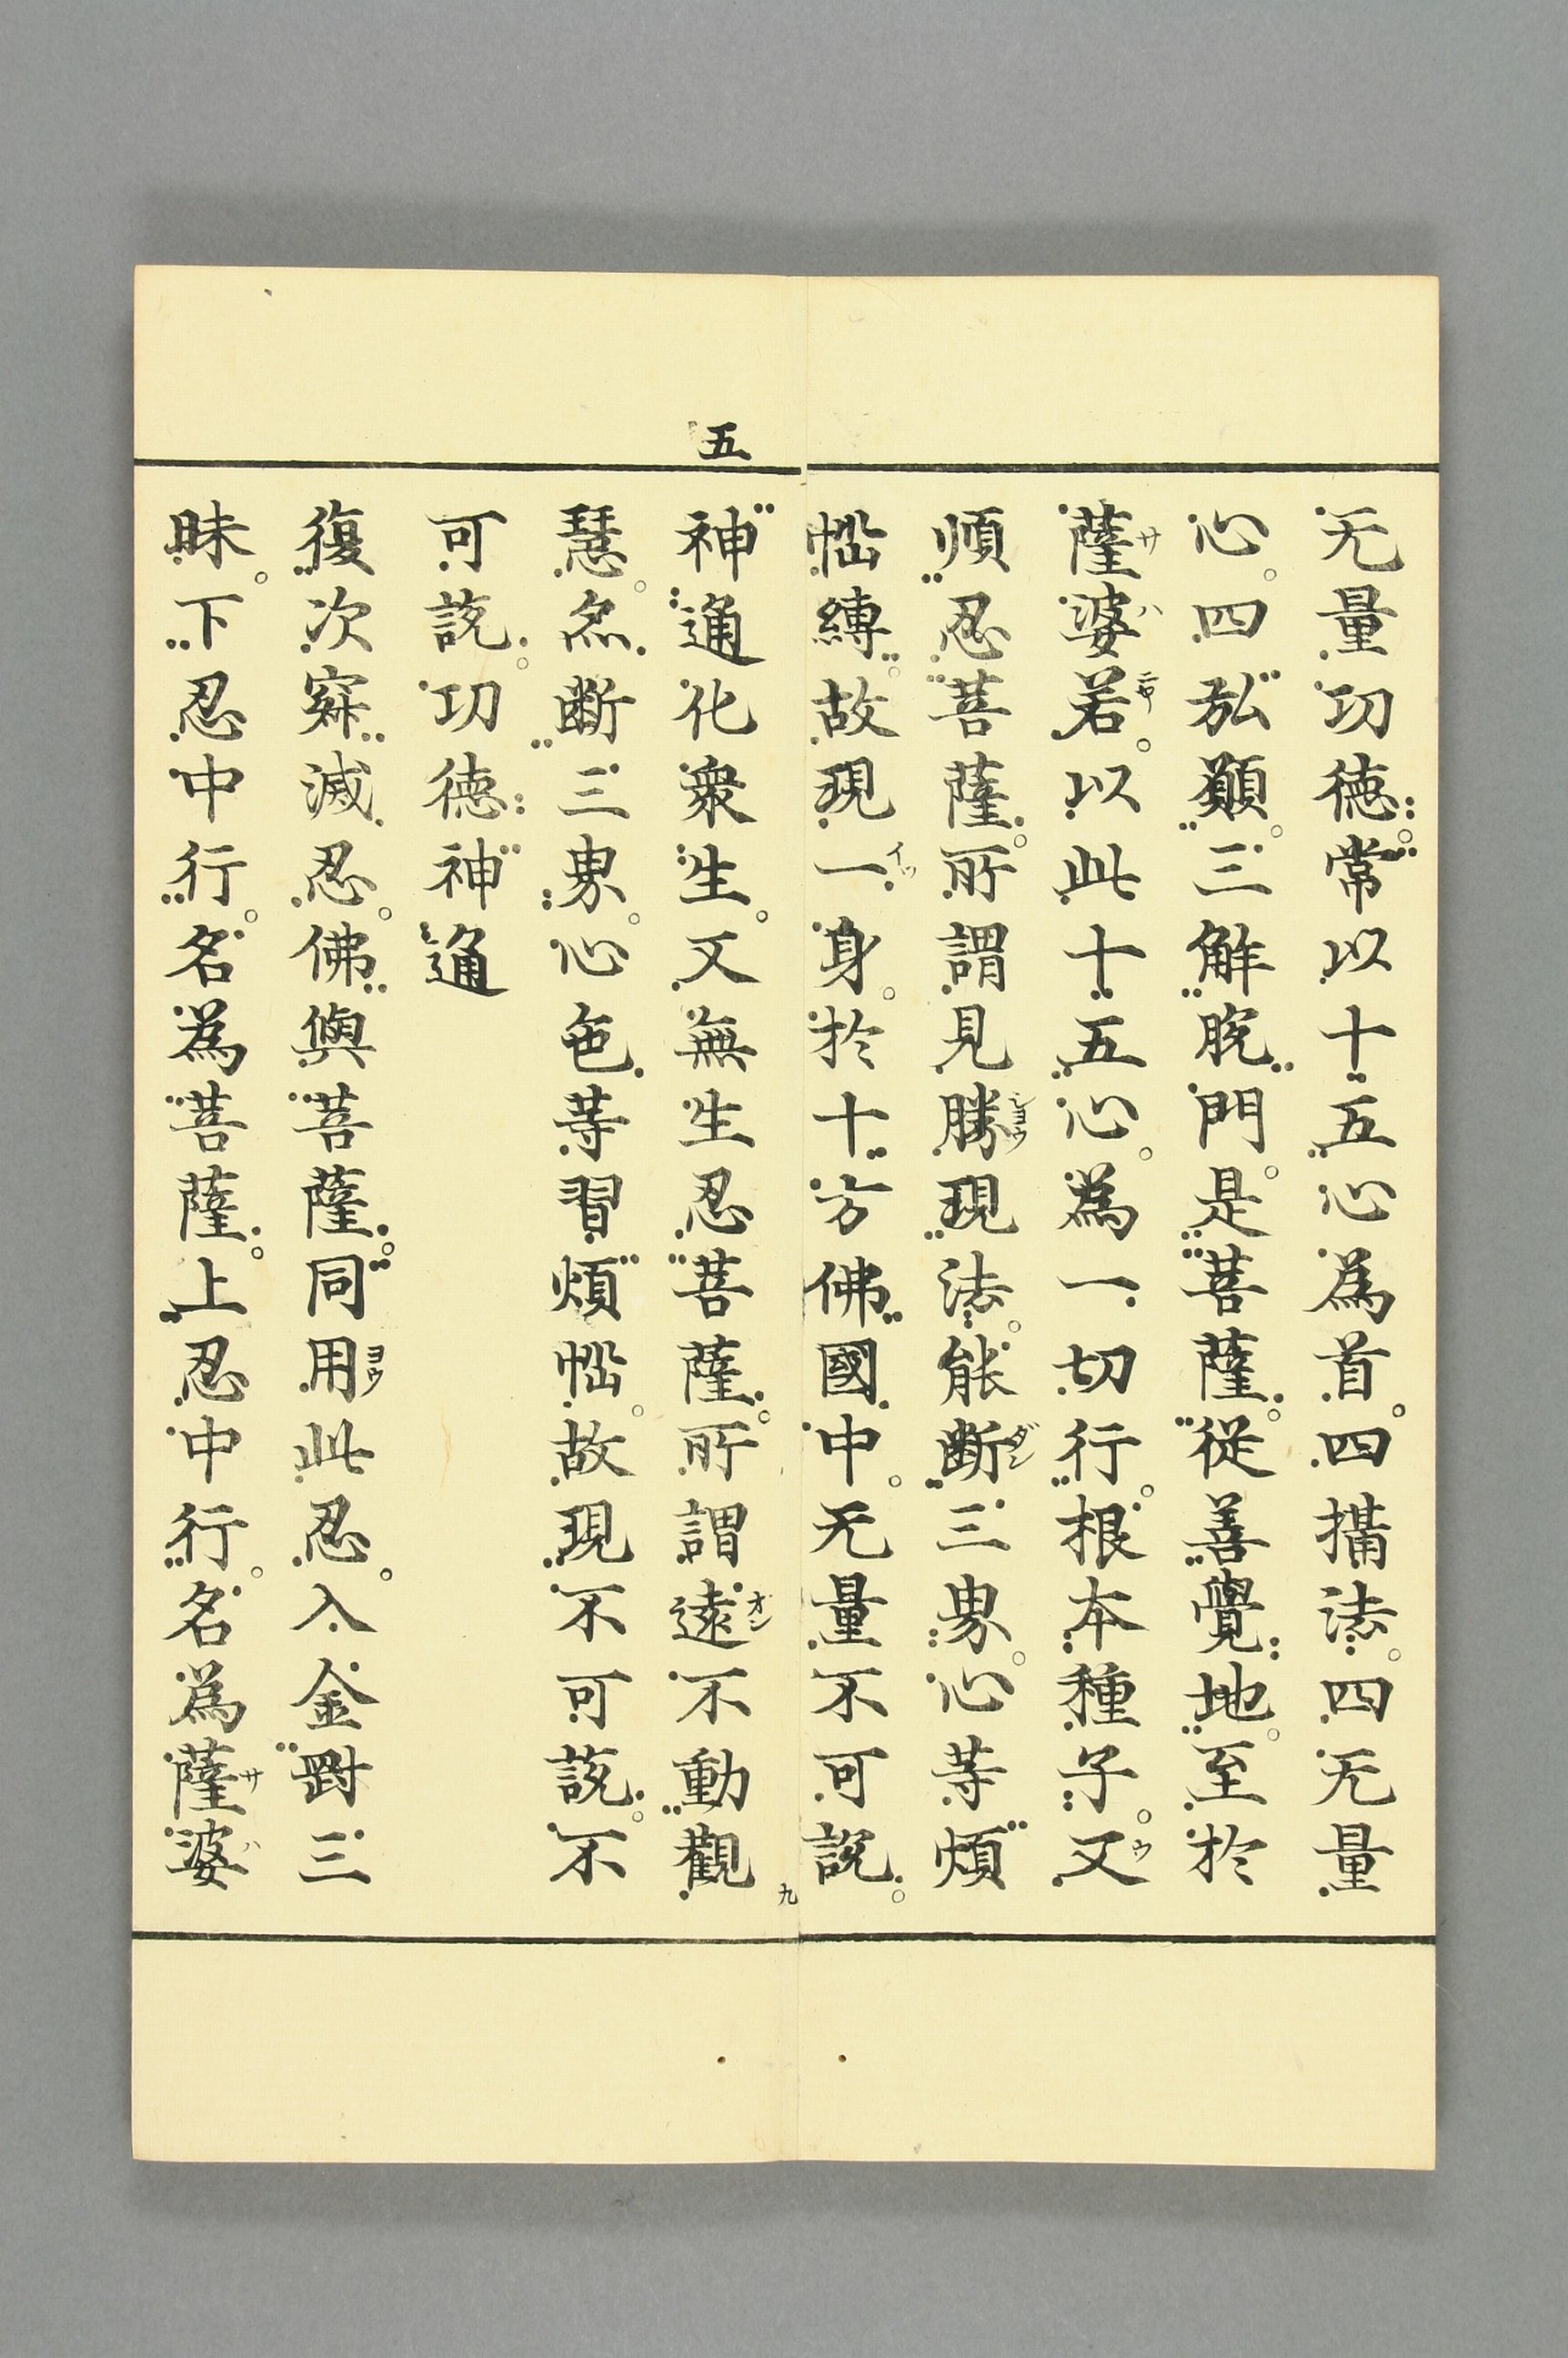 无量功徳常以十五心為首四攝法四无量
心四弘願三解脫門是菩薩從善覺地至於
薩婆若以此十五心為一切行根本種子又
順忍菩薩所謂見勝現法能断三界心等煩
惱縛故現一身於十方佛國中无量不可說
五
神通化衆生又無生忍菩薩所謂遠不動觀
慧亦断三界心色等習煩惱故現不可說不
可說功徳神通
復次寂滅忍佛與菩薩同用此忍入金剛三
昧下忍中行名為菩薩上忍中行名為薩婆
九
サ
ハ
ニヤ
イツ
シヨウ
ダン
ウ
オン
ヨウ
サ
ハ